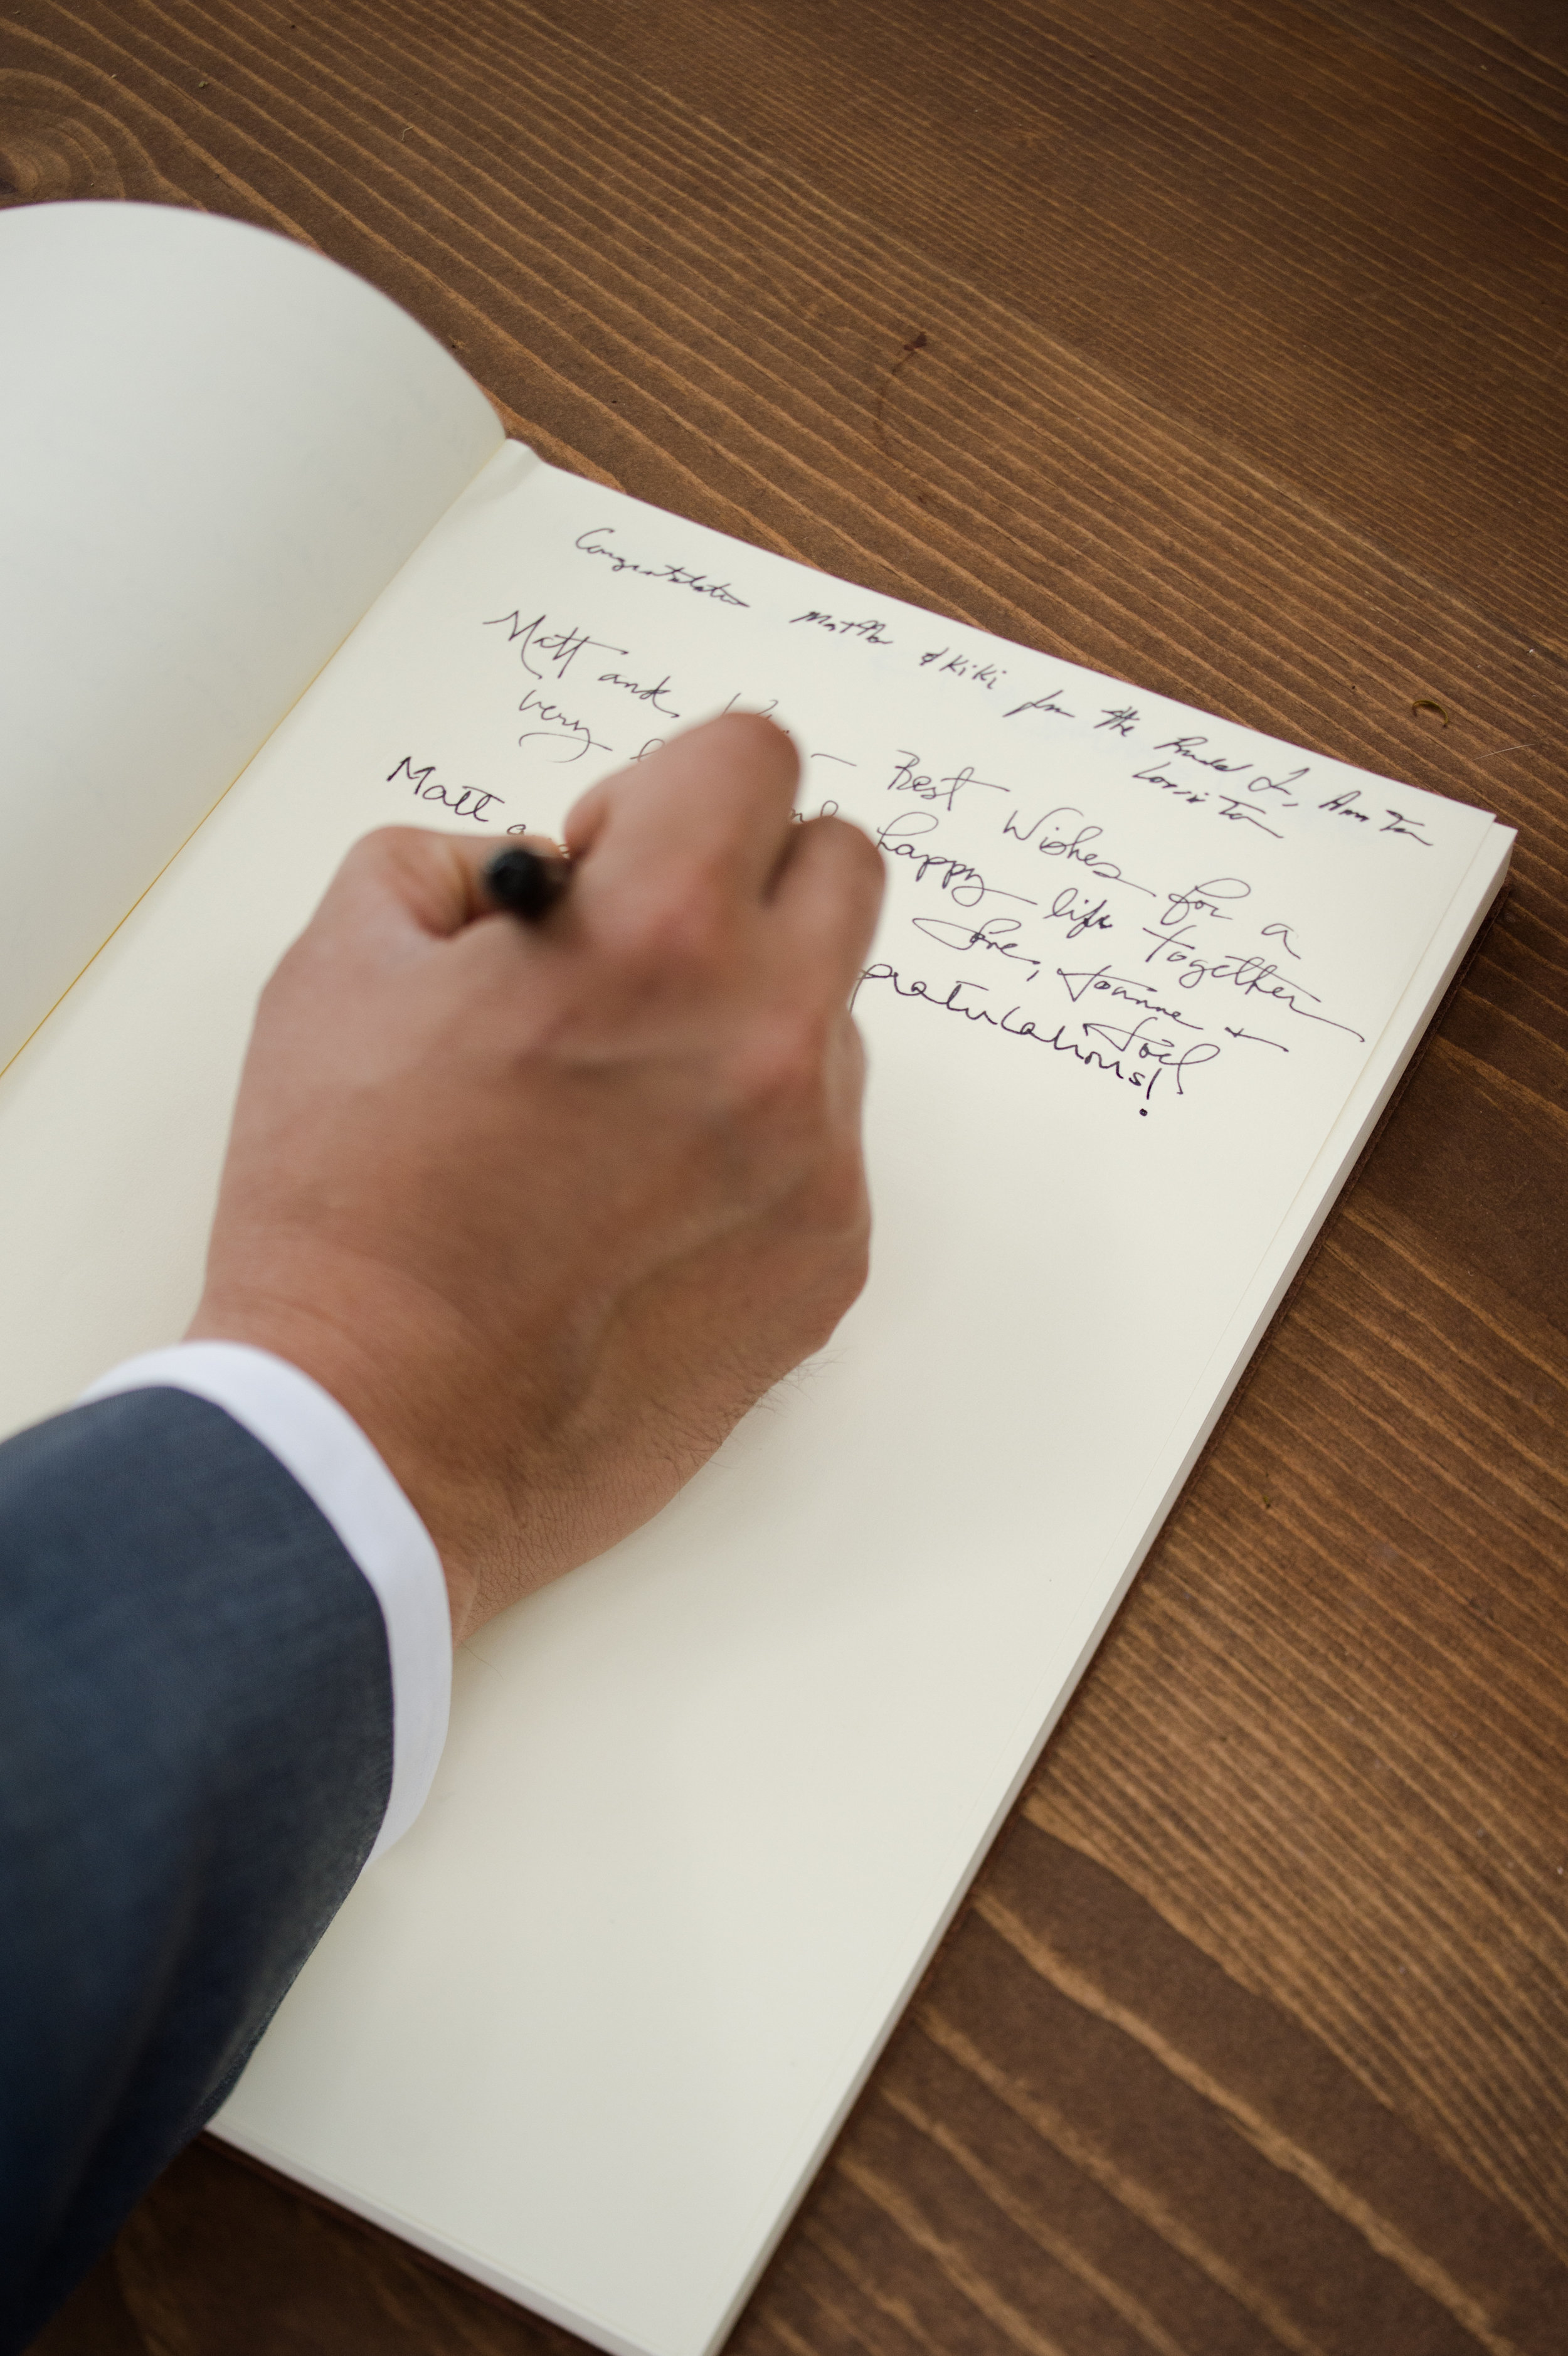 Congratulations Matthew & Kiki from the
Matt and — Best Wishes for a
very happy life together
Love, Joanne +
Joel
Matt gratulations!